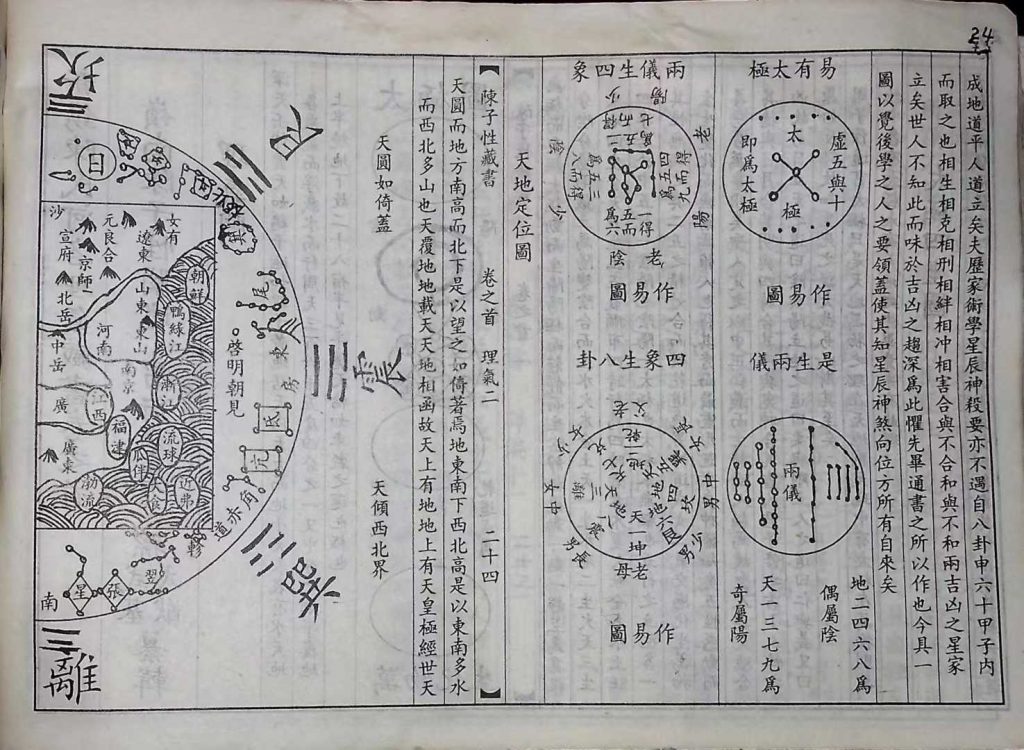 24
成地道平人道立矣夫歷家術學星辰神殺要亦不遇自八卦申六十甲子內
而取之也相生相克相刑相絆相冲相害合與不合和與不和兩吉凶之星家
立矣世人不知此而味於吉凶之趨深爲此懼先畢通書之所以作也今具一
圖以覺後學之人之要領蓋使其知星辰神煞向位方所有自來矣
易有太極
虛五與十
太
極
即爲太極
作易圖
是生兩儀
兩儀
地二四六八爲
偶屬陰
天一三七九爲
奇屬陽
兩儀生四象
老陽
得四五爲九而得
少陽
得一五爲六而
老陰
少陰
作易圖
四象生八卦
乾
父老
坤
母老
坎
男中
艮
男少
震
男長
離
女中
兌
女少
作易圖
天地定位圖
【陳子性藏書 卷之首 理氣二 二十四】
天圓而地方南高而北下是以望之如倚著焉地東南下西北高是以東南多水
而西北多山也天覆地地載天天地相函故天上有地地上有天皇極經世天
天圓如倚蓋
天傾西北界
坎
艮
震
巽
離
日
箕
尾
房
氐
亢
角
軫
翌
張
星
南
赤道
啓明朝見
女有
遼東
元良合
京師
宣府
沙
北岳
朝鮮
鴨緑江
山東
東山
河南
南京
中岳
浙江
江西
廣
福連
廣東
流球
瓜伴
近弗
勃流